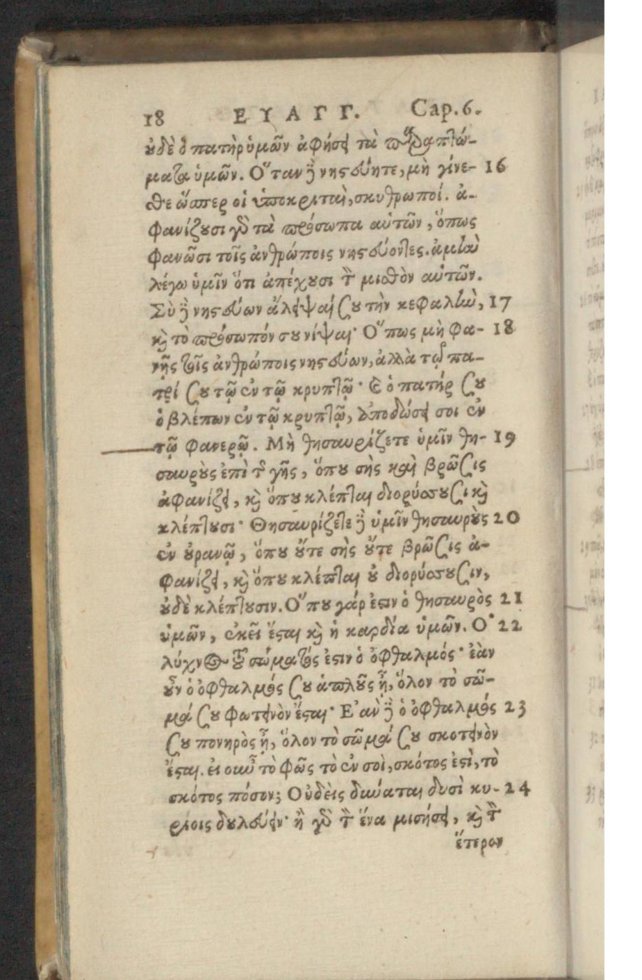 18 ΕΥΑΓΓ. Cap. 6.
ȣδὲ ὁ πατὴρ ὑμῶν ἀφήσει τὰ παραπτώ-
ματα ὑμῶν. Ὅταν δὲ νηστεύητε, μὴ γίνε- 16
σθε ὥσπερ οἱ ὑποκριταὶ, σκυθρωποί. ἀ-
φανίζȣσι γὰρ τὰ πρόσωπα αὑτῶν, ὅπως
φανῶσι τοῖς ἀνθρώποις νηστεύοντες. ἀμὴν
λέγω ὑμῖν ὅτι ἀπέχȣσι τὸν μισθὸν αὑτῶν.
Σὺ δὲ νηστεύων ἄλειψαί σȣ τὴν κεφαλὴν, 17
κὶ τὸ πρόσωπόν σȣ νίψαι· Ὅπως μὴ φα- 18
νῇς τοῖς ἀνθρώποις νηστεύων, ἀλλὰ τῷ πα-
τρί σȣ τῷ ἐν τῷ κρυπτῷ· κὶ ὁ πατήρ σȣ
ὁ βλέπων ἐν τῷ κρυπτῷ, ἀποδώσει σοι ἐν
τῷ φανερῷ. Μὴ θησαυρίζετε ὑμῖν θη- 19
σαυρὺς ἐπὶ τῆς γῆς, ὅπȣ σὴς καὶ βρῶσις
ἀφανίζει, κὶ ὅπȣ κλέπται διορύσσȣσι κὶ
κλέπτȣσι· Θησαυρίζετε δὲ ὑμῖν θησαυρȣ̀ς 20
ἐν ȣ̓ρανῷ, ὅπȣ ȣ̓́τε σὴς ȣ̓́τε βρῶσις ἀ-
φανίζει, κὶ ὅπȣ κλέπται ȣ̓ διορύσσȣσιν,
ȣ̓δὲ κλέπτȣσιν. Ὅπȣ γάρ ἐστιν ὁ θησαυρὸς 21
ὑμῶν, ἐκεῖ ἔσται κὶ ἡ καρδία ὑμῶν. Ὁ 22
λύχνος τοῦ σώματός ἐστιν ὁ ὀφθαλμός· ἐὰν
ȣ̓͂ν ὁ ὀφθαλμός σȣ ἁπλȣ͂ς ᾖ, ὅλον τὸ σῶ-
μά σȣ φωτεινὸν ἔσται· Ἐὰν δὲ ὁ ὀφθαλμός 23
σȣ πονηρὸς ᾖ, ὅλον τὸ σῶμά σȣ σκοτεινὸν
ἔσται. εἰ οὖν τὸ φῶς τὸ ἐν σοὶ, σκότος ἐστὶ, τὸ
σκότος πόσον; Οὐδεὶς δύναται δυσὶ κυ- 24
ρίοις δȣλεύειν· ἢ γὰρ τὸν ἕνα μισήσει, κὶ τὸν
ἕτερον